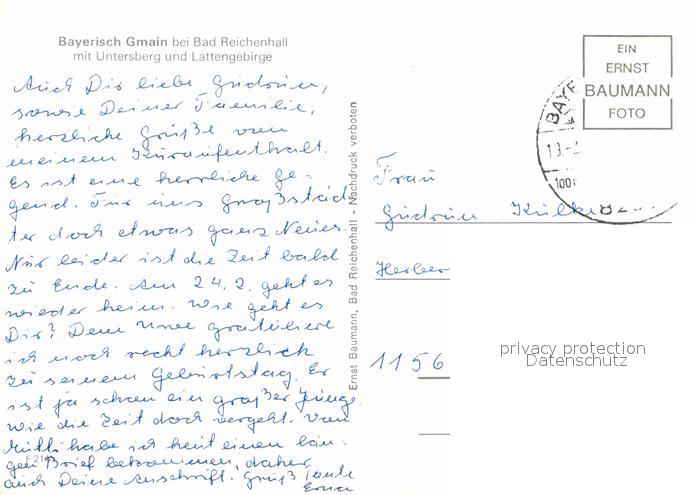 Bayerisch Gmain bei Bad Reichenhall
mit Untersberg und Lattengebirge
Auch Dir liebe Gudrun,
sowie Deiner Familie,
herzliche Grüße von
meinem Kuraufenthalt.
Es ist eine herrliche Ge-
gend. Für uns Großstäd
ter doch etwas ganz Neues.
Nur leider ist die Zeit bald
zu Ende. Am 24.2. geht es
wieder heim. Wie geht es
Dir? Dem Uwe gratuliere
ich noch recht herzlich
zu seinem Geburtstag. Er
ist ja schon ein großer Junge.
Wie die Zeit doch vergeht. Von
Mutti habe ich heut einen lan-
gen Brief bekommen, daher
auch Deine Anschrift. Gruß Tante
Erna
F 214
Ernst Baumann, Bad Reichenhall - Nachdruck verboten
EIN
ERNST
BAUMANN
FOTO
BAYE
82
Frau
Gudrun
1156
privacy protection
Datenschutz